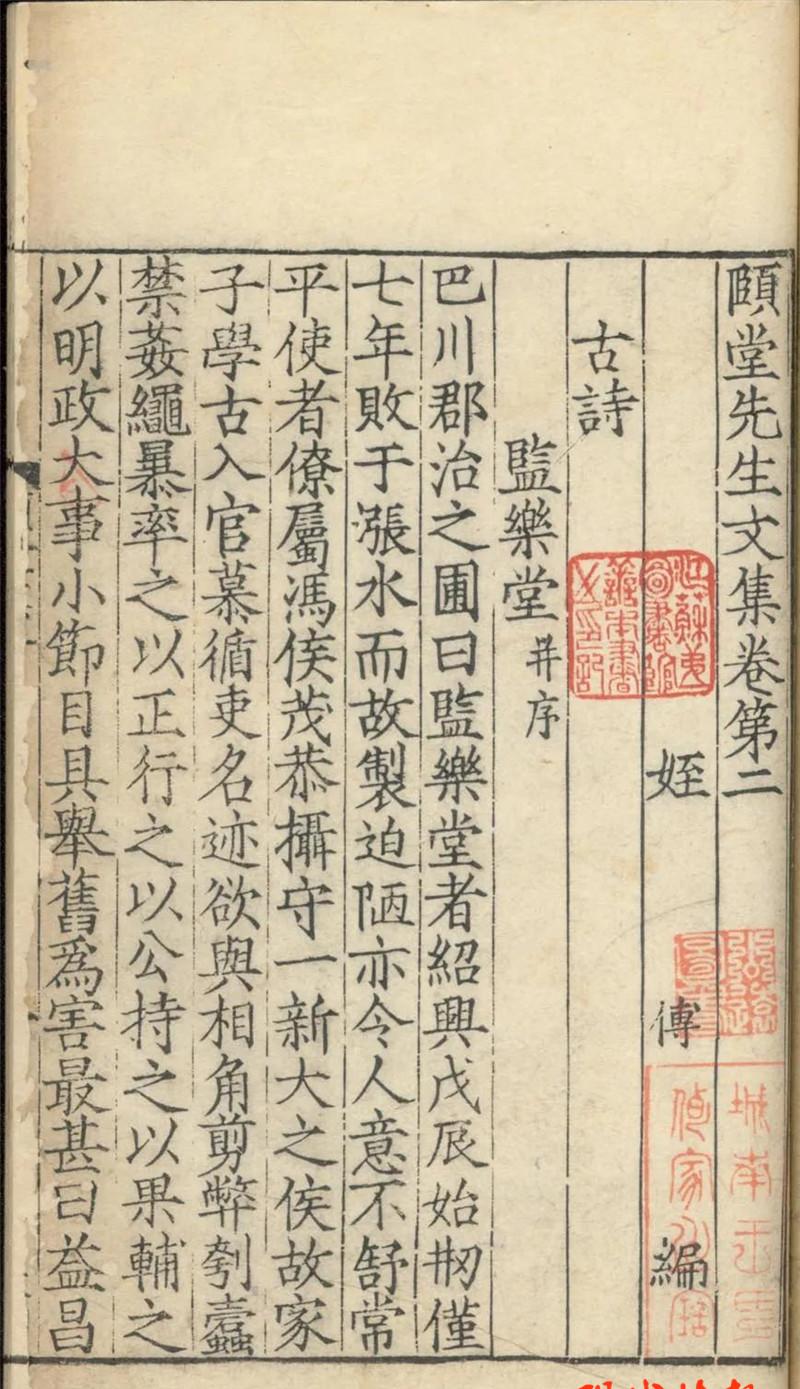 頤堂先生文集卷第二
姪 傅 編
古詩
監樂堂 并序
巴川郡治之圃曰監樂堂者紹興戊辰始剏僅
七年敗于漲水而故製迫陋亦令人意不舒常
平使者僚屬馮侯茂恭攝守一新大之侯故家
子學古入官慕循吏名迹欲與相角剪弊刳蠹
禁姦繩暴率之以正行之以公持之以果輔之
以明政大事小節目具舉舊為害最甚曰益昌